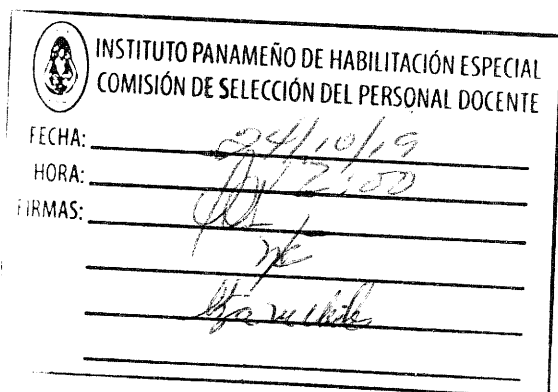 INSTITUTO PANAMEÑO DE HABILITACIÓN ESPECIAL
COMISIÓN DE SELECCIÓN DEL PERSONAL DOCENTE
FECHA: 24/10/19
HORA: 2:00
FIRMAS: